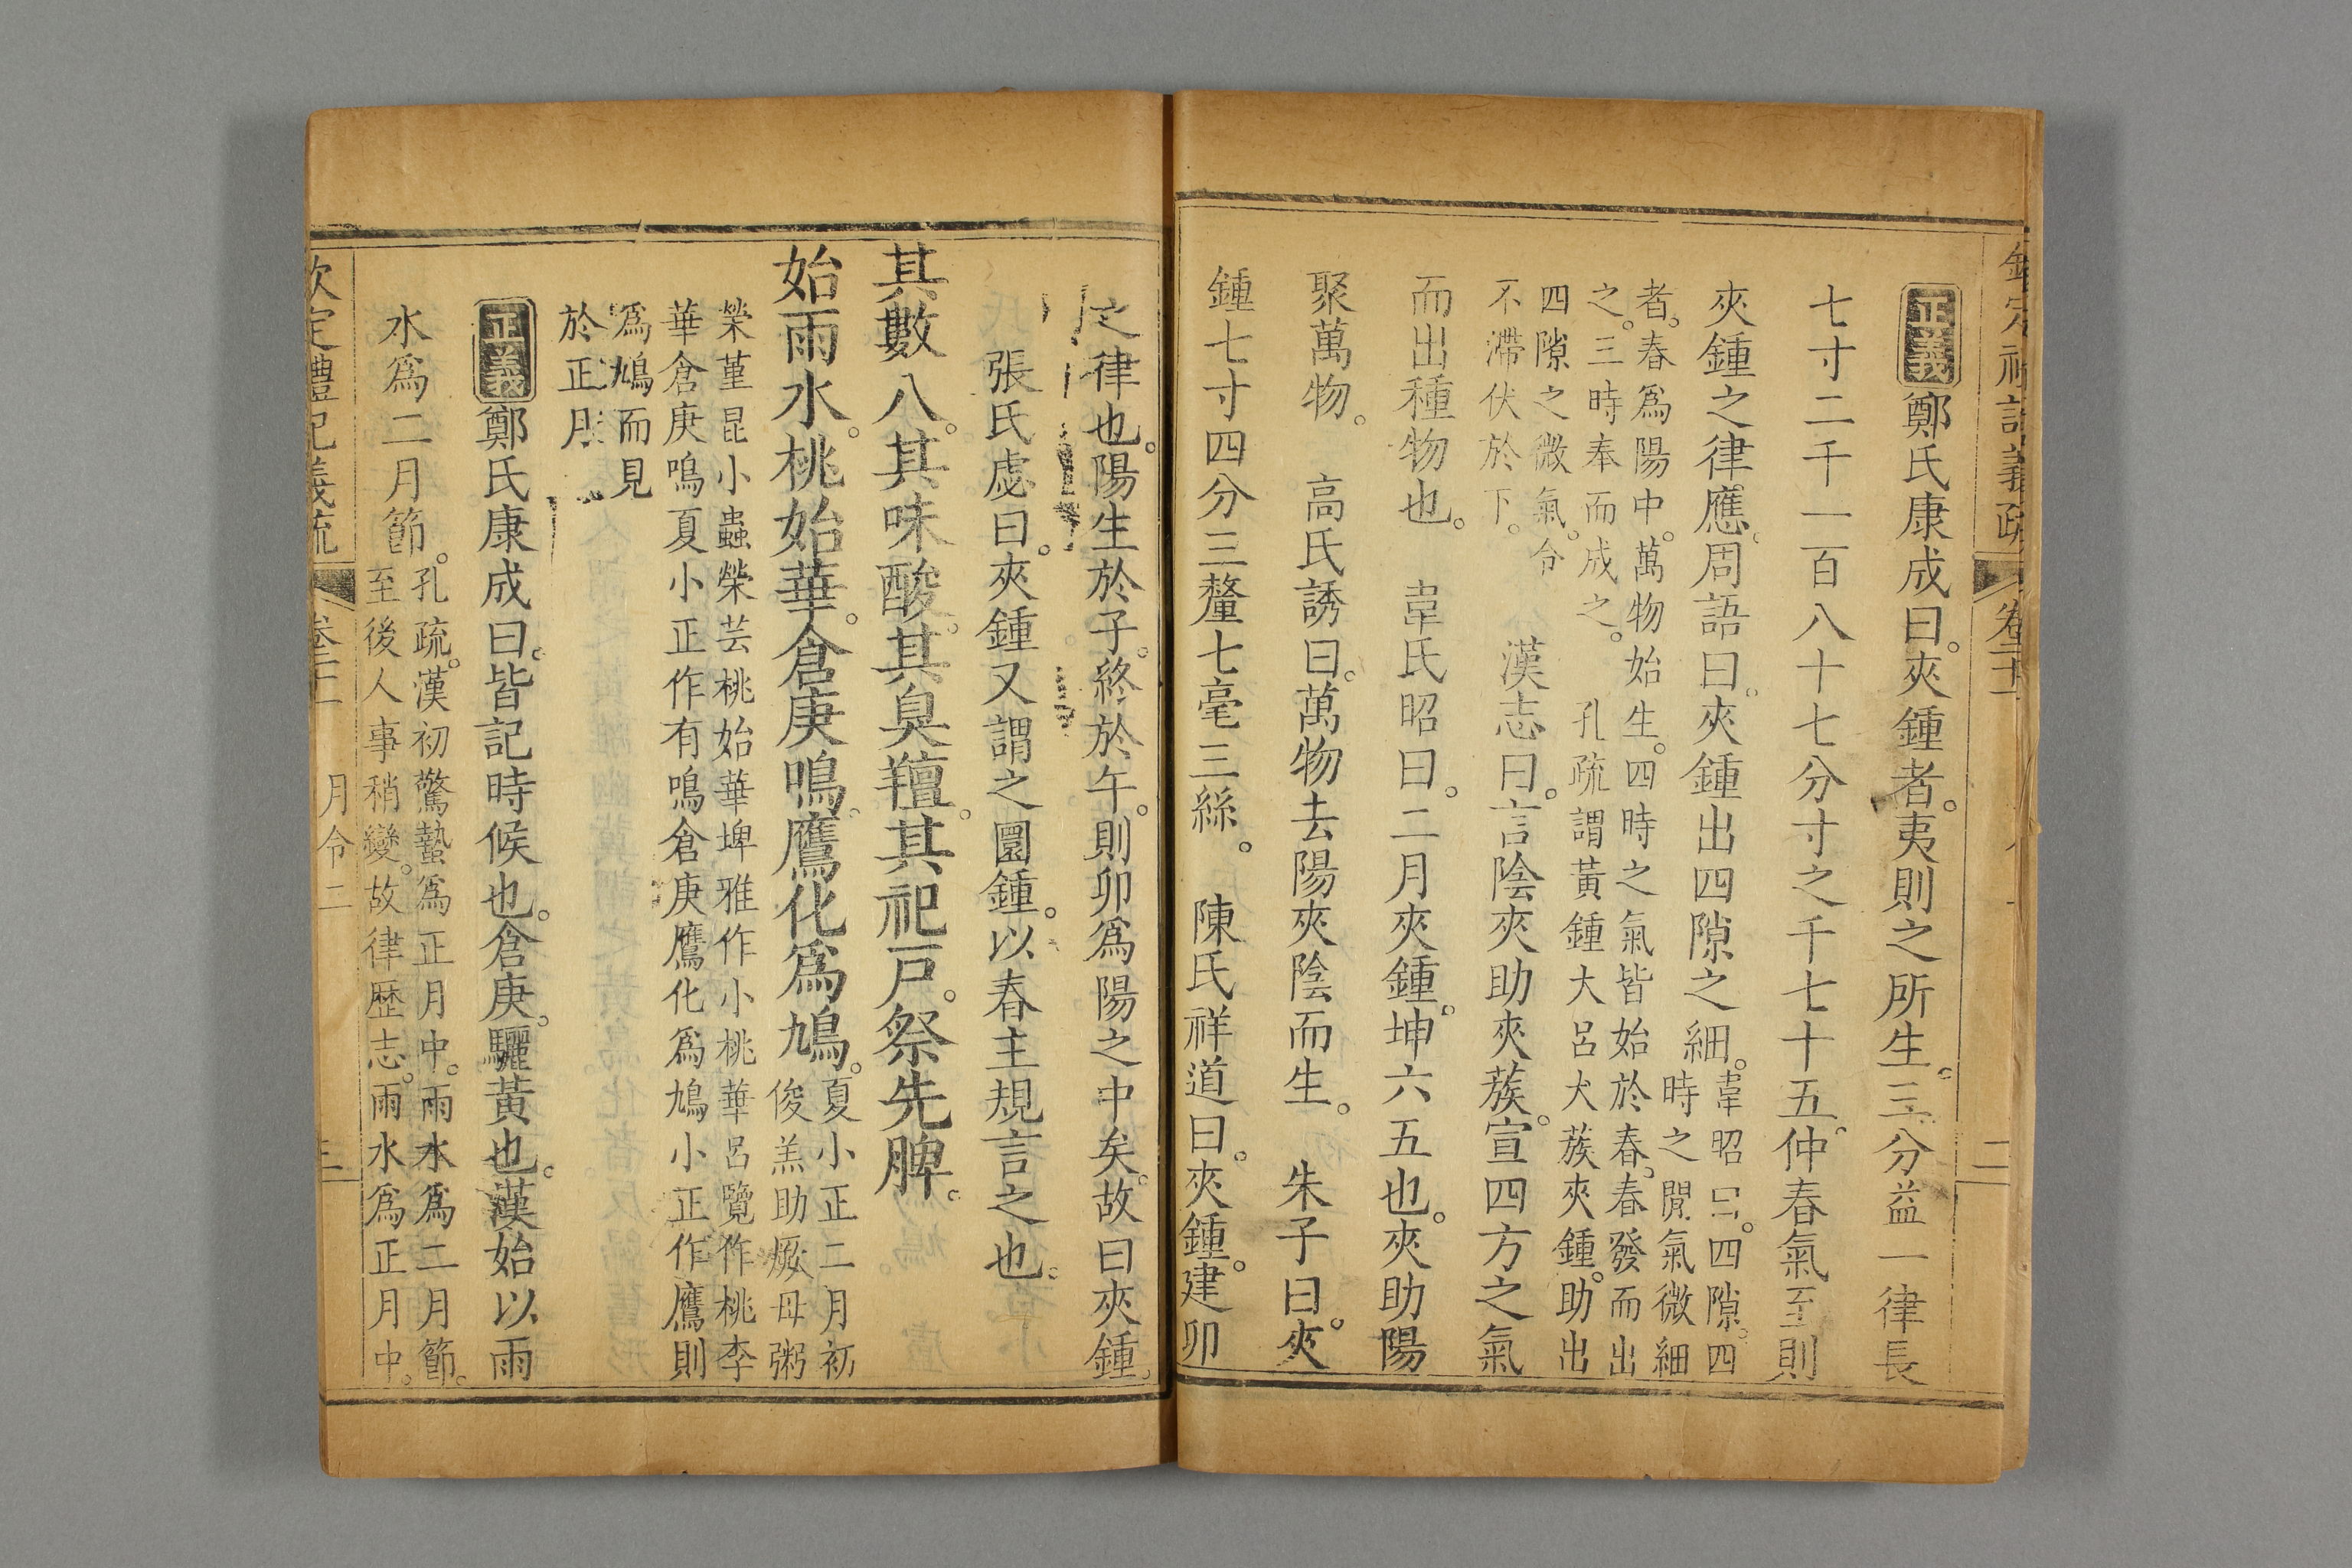 欽定禮記義疏 卷二十一 二
正義鄭氏康成曰。夾鍾者。夷則之所生。三分益一律長
七寸二千一百八十七分寸之千七十五。仲春氣至則
夾鍾之律應。周語曰。夾鍾出四隙之細。
韋昭曰。四隙。四
時之閒氣微細
者。春爲陽中。萬物始生。四時之氣皆始於春。春發而出
之。三時奉而成之。 孔疏謂黃鍾大呂太蔟夾鍾。助出
四隙之微氣。令
不滯伏於下。
漢志曰。言陰夾助夾蔟。宣四方之氣
而出種物也。 韋氏昭曰。二月夾鍾。坤六五也。夾助陽
聚萬物。 高氏誘曰。萬物去陽夾陰而生。 朱子曰。夾
鍾七寸四分三釐七毫三絲。 陳氏祥道曰。夾鍾。建卯
之律也。陽生於子。終於午。則卯爲陽之中矣。故曰夾鍾。
張氏虙曰。夾鍾又謂之圜鍾。以春主規言之也。
其數八。其味酸。其臭羶。其祀戶。祭先脾。
始雨水。桃始華。倉庚鳴。鷹化爲鳩。
夏小正二月初
俊羔助厥母粥
榮堇昆小蟲榮芸桃始華埤雅作小桃華呂覽作桃李
華倉庚鳴夏小正作有鳴倉庚鷹化爲鳩小正作鷹則
爲鳩而見
於正月
正義鄭氏康成曰。皆記時候也。倉庚。驪黃也。漢始以雨
水爲二月節。
孔疏。漢初驚蟄爲正月中。雨水爲二月節。
至後人事稍變。故律歷志。雨水爲正月中。
欽定禮記義疏 卷二十一 月令二 三